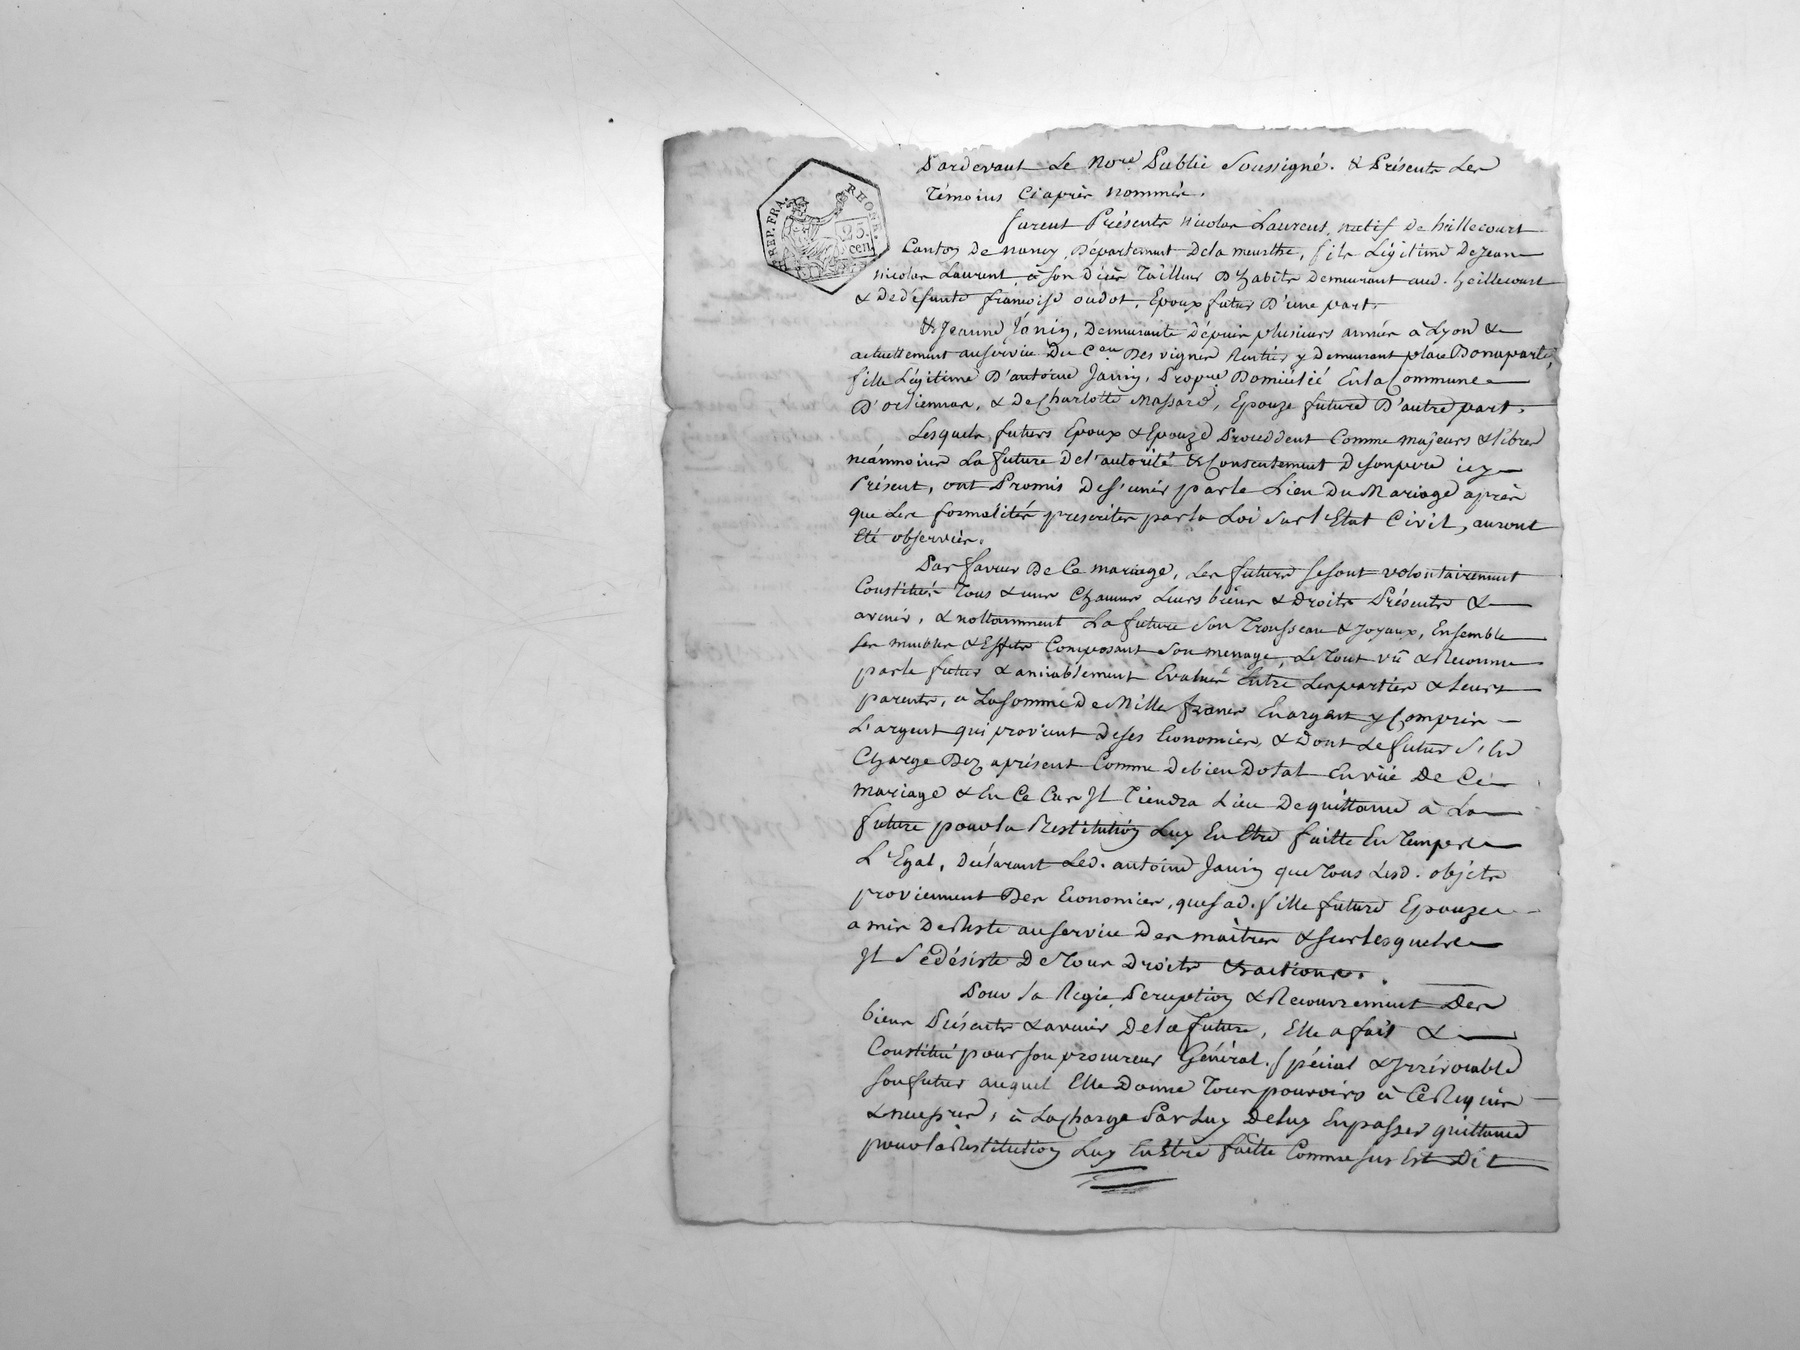 REP. FRA.
RHONE.
25.
cen.
Pardevant Le Nore. Public Soussigné. & Présents Les
Témoins Ciaprès nommés.
furent Présents nicolas Laurent, natif de hillecourt
Canton De nancy, Département Dela meurthe, fils Légitime De Jean
nicolas Laurent, à son Décès Tailleur D'habits Demeurant aud. heillecourt
& De défunte françoise oudot, Epoux futur D'une part.
& Jeanne Janin, Demeurante Dépuis plusieurs années à Lyon &
actuellement au service Du Cen Des vignes Rentier y Demeurant place Bonaparte,
fille Légitime D'antoine Janin, Propre. Domicilié En la Commune
D' & De Charlotte Massard, Epouze future D'autre part.
Lesquels futurs Epoux & Epouze Procédent Comme majeurs & libres
néanmoins La future De l'autorité & Consentement De son pere icy
Présent, ont Promis De s'unir par le Lien Du Mariage après
que Les formalités prescrites par la Loi sur l'Etat Civil, auront
Eté observées.
Par faveur De Ce mariage, Les futurs se sont volontairement
Constitués Tous & uns Chacuns Leurs biens & Droits Présents &
avenir, & nottamment La future Son Trousseau & Joyaux, Ensemble
ses meubles & Effets Composant Son menage, Le Tout vû & Reconnu
par le futur & amiablement Evalués Entre Les parties & Leurs
parents, à La Somme De Mille francs En argent y Compris
L'argent qui provient De ses Economies, & Dont Le futur S'En
Charge Dez aprésent Comme De bien Dotal En vüe De Ce
mariage & En Ce Cas Il Tiendra Lieu De quittance à La
future pour la Restitution Luy En Etre faitte En Temps &
L'Egal, Déclarant Led. antoine Janin que Tous Lesd. objets
proviennent Des Economies, que sad. fille future Epouze
a mis De Reste au service Des maîtres & sur lesquels
Il Se désiste De Tous Droits & actions.
Pour la Régie, Perception & Recouvrement Des
biens Présents & avenir De la future, Elle a fait &
Constitué pour son procureur Général, Spécial & Irrévocable
son futur auquel Elle Donne Tous pouvoirs à Ce Requis
& necessaires, à La Charge Par Luy De Luy En passer quittance
pour la Restitution Luy En Etre faitte Comme sus Est Dit